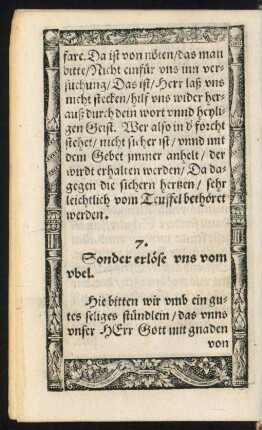 fare. Da ist von nöten/das man
bitte/Nicht einfür vns inn ver-
suchung/Das ist/Herr laß vns
nicht stecken/hilf vns wider her-
auß durch dein wort vnnd heyli-
gen Geist. Wer also in d' forcht
stehet/nicht sicher ist/vnnd mit
dem Gebet ymmer anhelt/der
wirdt erhalten werden/Da da-
gegen die sichern hertzen/sehr
leichtlich vom Teuffel bethöret
werden.
7.
Sonder erlöse vns vom
vbel.
Hie bitten wir vmb ein gu-
tes seliges stündlein/das vnns
vnser HErr Gott mit gnaden
von